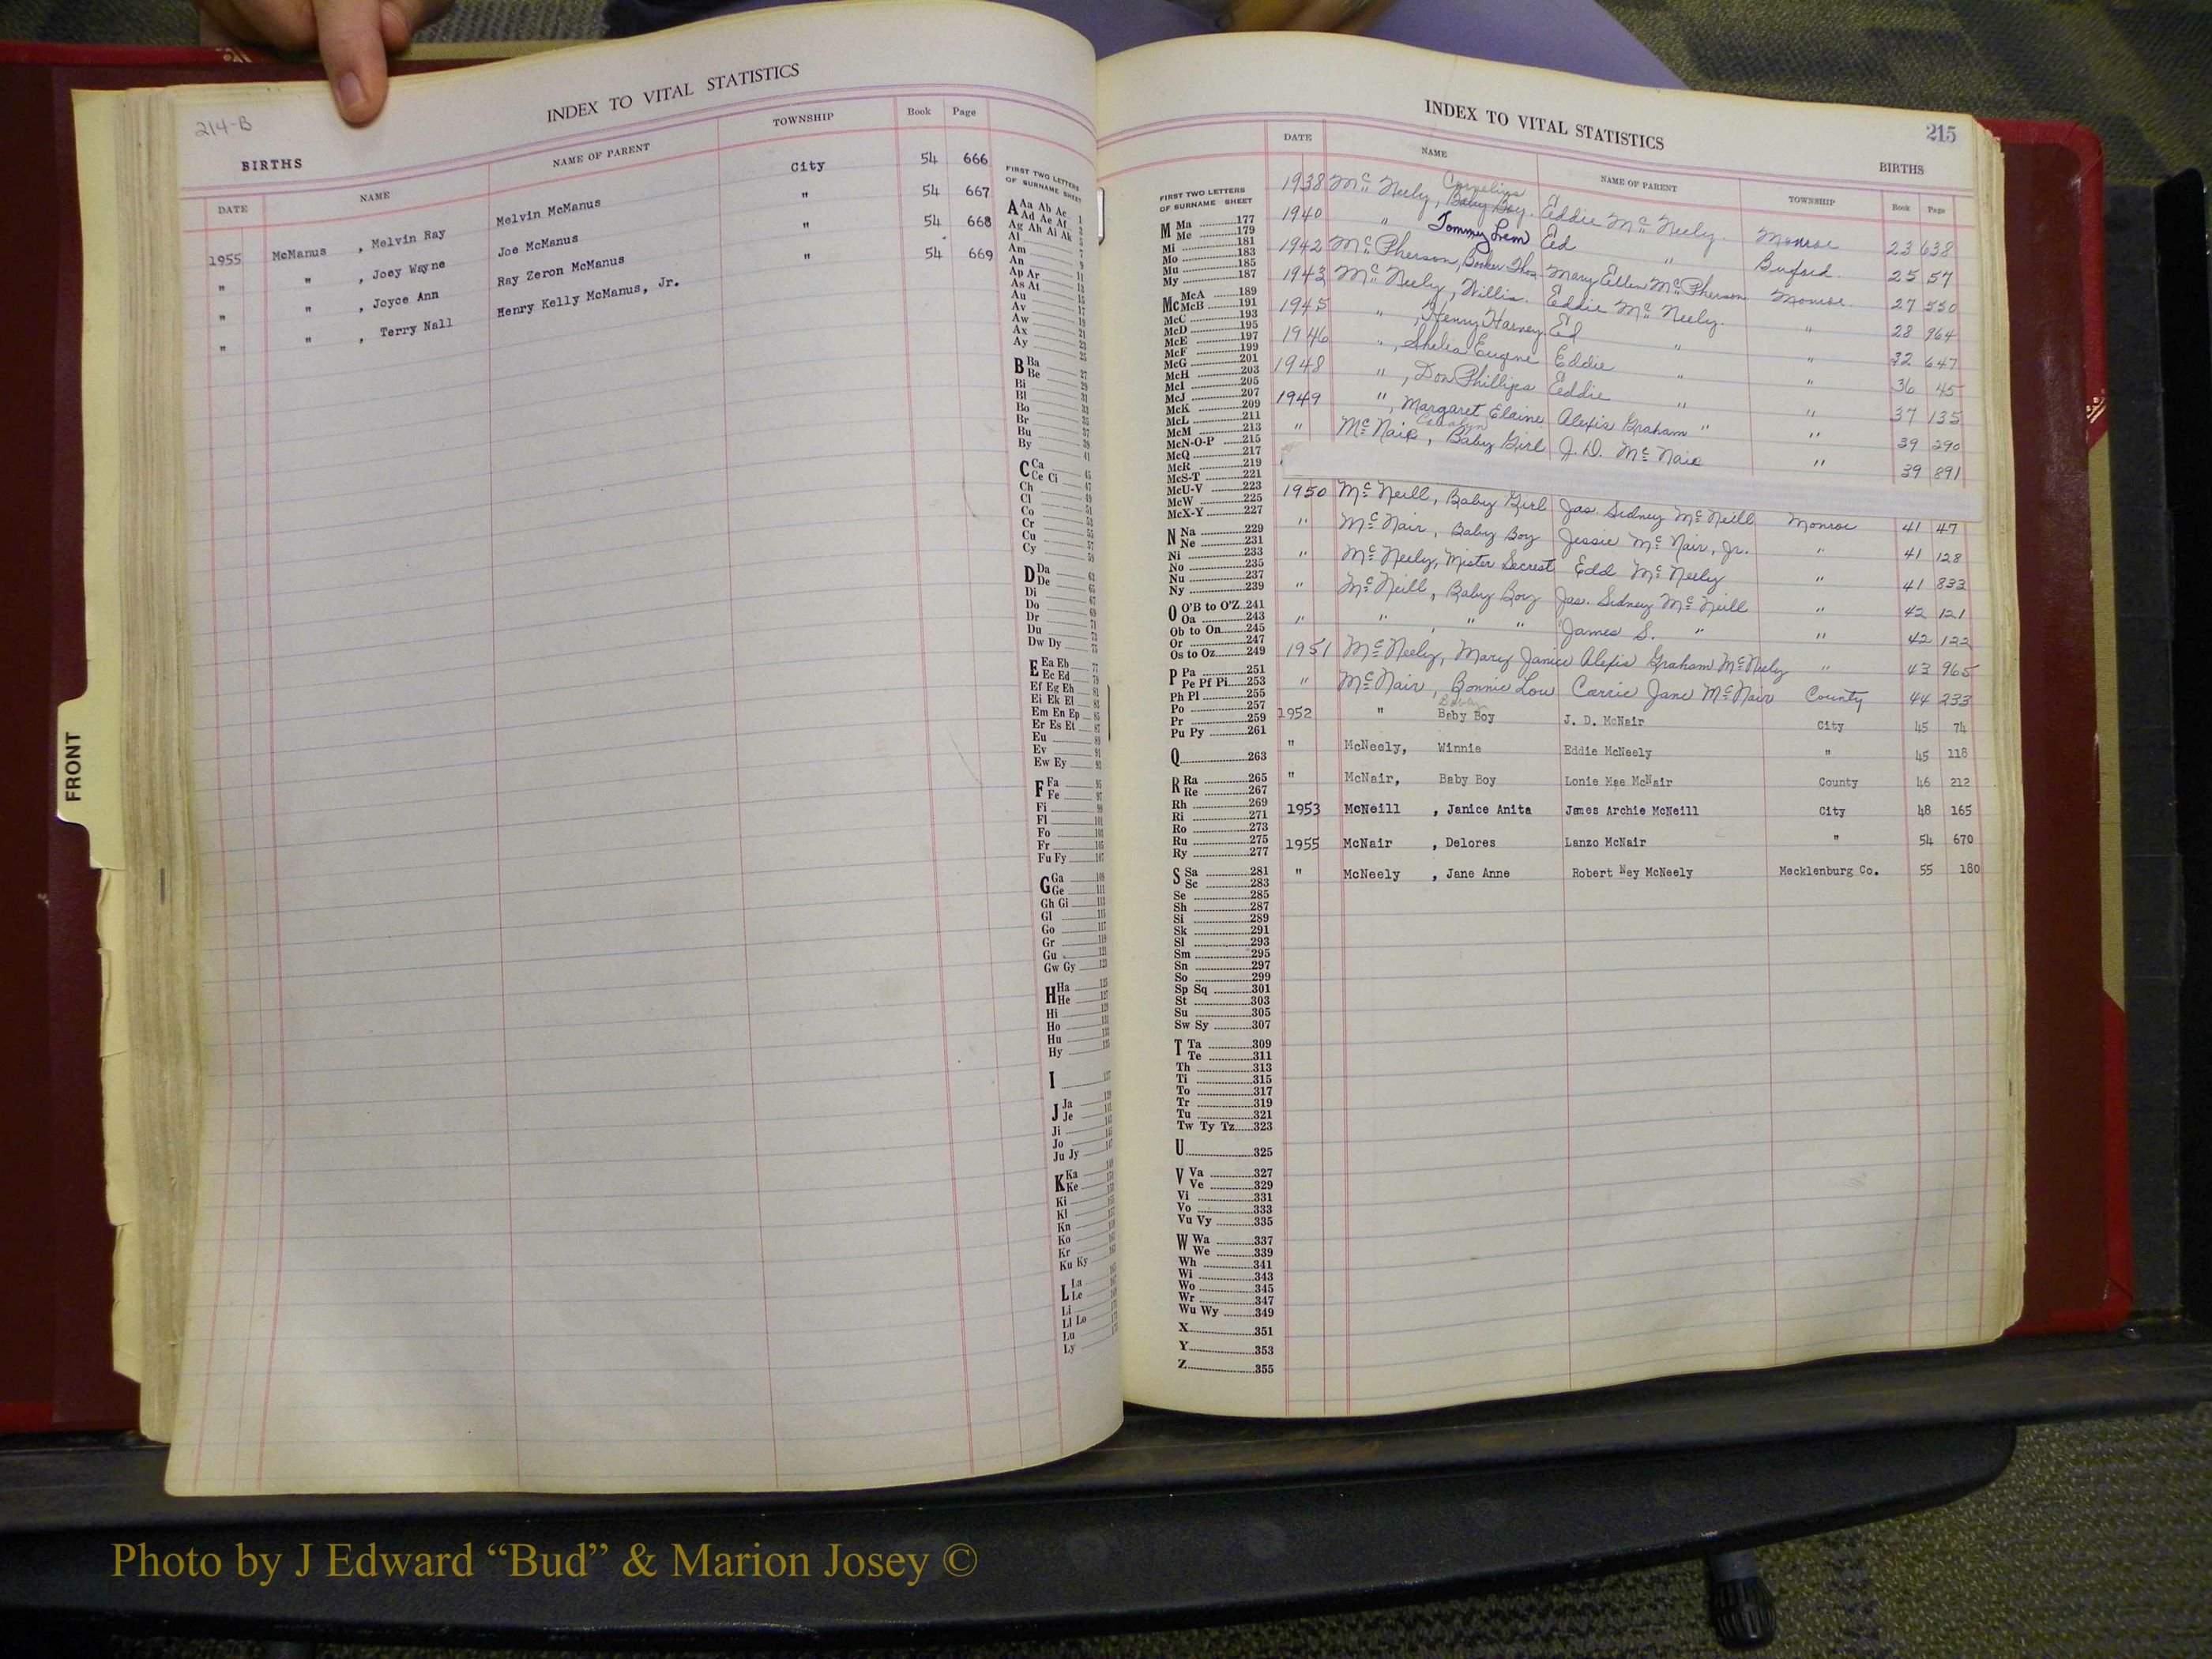 214-B
INDEX TO VITAL STATISTICS
BIRTHS
DATE NAME NAME OF PARENT TOWNSHIP Book Page
1955 McManus , Melvin Ray Melvin McManus City 54 666
" " , Joey Wayne Joe McManus " 54 667
" " , Joyce Ann Ray Zeron McManus " 54 668
" " , Terry Nall Henry Kelly McManus, Jr. " 54 669
FIRST TWO LETTERS
OF SURNAME SHEET
A Aa Ab Ac 1
Ad Ae Af
Ag Ah Ai Ak
Al
Am
An
Ap Ar
As At
Au
Av
Aw
Ax
Ay
B Ba
Be
Bi
Bl
Bo
Br
Bu
By
C Ca
Ce Ci
Ch
Cl
Co
Cr
Cu
Cy
D Da
De
Di
Do
Dr
Du
Dw Dy
E Ea Eb
Ec Ed
Ef Eg Eh
Ei Ek El
Em En Ep
Er Es Et
Eu
Ev
Ew Ey
F Fa
Fe
Fi
Fl
Fo
Fr
Fu Fy
G Ga
Ge
Gh Gi
Gl
Go
Gr
Gu
Gw Gy
H Ha
He
Hi
Ho
Hu
Hy
I
J Ja
Je
Ji
Jo
Ju Jy
K Ka
Ke
Ki
Kl
Kn
Ko
Kr
Ku Ky
L La
Le
Li
Ll Lo
Lu
Ly
FRONT
INDEX TO VITAL STATISTICS
215
BIRTHS
DATE NAME NAME OF PARENT TOWNSHIP Book Page
Cornelius
1938 McNeely, Baby Boy. Eddie McNeely. Monroe 23 638
1940 " Tommy Lem Ed " Buford. 25 57
1942 McPherson, Booker Thos. Mary Ellen McPherson Monroe. 27 530
1943 McNeely, Willis. Eddie McNeely. " 28 964
1945 " , Henry Harvey. Ed " " 32 647
1946 " , Shelia Eugene Eddie " " 36 45
1948 " , Don Phillips Eddie " " 37 135
1949 " , Margaret Elaine Alexis Graham " " 39 290
" McNair, Baby Girl J. D. McNair " 39 891
1950 McNeill, Baby Girl Jas. Sidney McNeill Monroe 41 47
" McNair, Baby Boy Jessie McNair, Jr. " 41 128
" McNeely, Mister Secrest Edd McNeely " 41 833
" McNeill, Baby Boy Jas. Sidney McNeill " 42 121
" " , " " James S. " " 42 122
1951 McNeely, Mary Janice Alexis Graham McNeely " 43 965
" McNair, Bonnie Lou Carrie Jane McNair County 44 233
1952 " Baby Boy J. D. McNair City 45 74
" McNeely, Winnie Eddie McNeely " 45 118
" McNair, Baby Boy Lonie Mae McNair County 46 212
1953 McNeill , Janice Anita James Archie McNeill City 48 165
1955 McNair , Delores Lanzo McNair " 54 670
" McNeely , Jane Anne Robert Ney McNeely Mecklenburg Co. 55 180
FIRST TWO LETTERS
OF SURNAME SHEET
M Ma 177
Me 179
Mi 181
Mo 183
Mu 185
My 187
Mc McA 189
McB 191
McC 193
McD 195
McE 197
McF 199
McG 201
McH 203
McI 205
McJ 207
McK 209
McL 211
McM 213
McN-O-P 215
McQ 217
McR 219
McS-T 221
McU-V 223
McW 225
McX-Y 227
N Na 229
Ne 231
Ni 233
No 235
Nu 237
Ny 239
O O'B to O'Z 241
Oa 243
Ob to On 245
Or 247
Os to Oz 249
P Pa 251
Pe Pf Pi 253
Ph Pl 255
Po 257
Pr 259
Pu Py 261
Q 263
R Ra 265
Re 267
Rh 269
Ri 271
Ro 273
Ru 275
Ry 277
S Sa 281
Sc 283
Se 285
Sh 287
Si 289
Sk 291
Sl 293
Sm 295
Sn 297
So 299
Sp Sq 301
St 303
Su 305
Sw Sy 307
T Ta 309
Te 311
Th 313
Ti 315
To 317
Tr 319
Tu 321
Tw Ty Tz 323
U 325
V Va 327
Ve 329
Vi 331
Vo 333
Vu Vy 335
W Wa 337
We 339
Wh 341
Wi 343
Wo 345
Wr 347
Wu Wy 349
X 351
Y 353
Z 355
Photo by J Edward “Bud” & Marion Josey ©